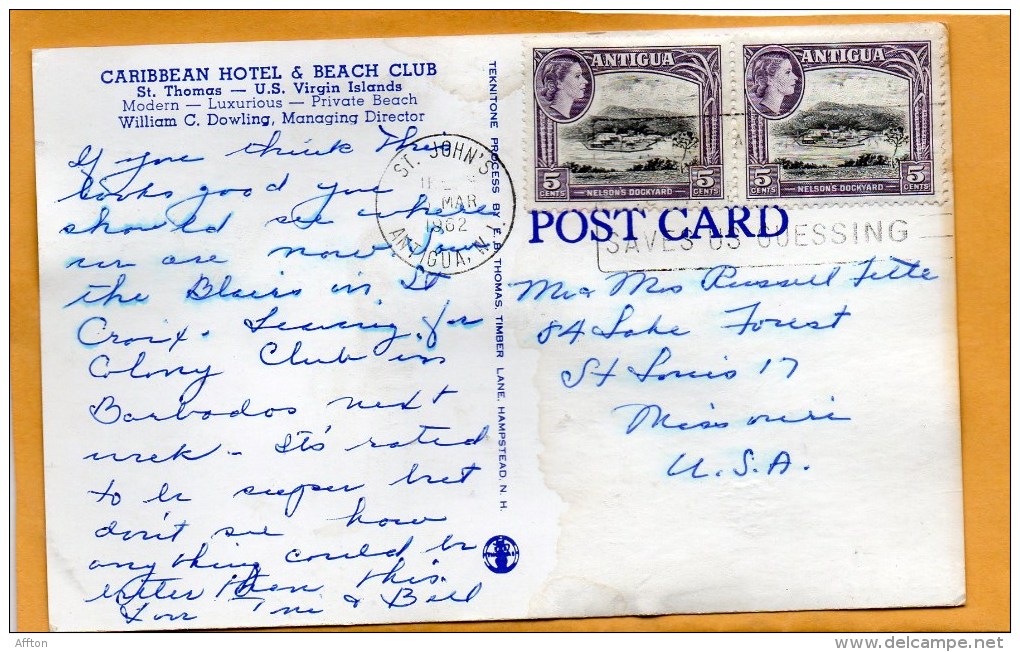 CARIBBEAN HOTEL & BEACH CLUB
St. Thomas — U.S. Virgin Islands
Modern — Luxurious — Private Beach
William C. Dowling, Managing Director
If you think this
looks good you
should see where
we are now. Saw
the Blairs in St
Croix. Leaving for
Colony Club in
Barbados next
week - It's rated
to be super but
don't see how
anything could be
better than this.
& Bill
TEKNITONE PROCESS BY E.B. THOMAS, TIMBER LANE, HAMPSTEAD, N. H.
ANTIGUA
5 CENTS
NELSON'S DOCKYARD
5 CENTS
ANTIGUA
5 CENTS
NELSON'S DOCKYARD
5 CENTS
ST. JOHN'S
MAR
1962
ANTIGUA, W.I.
POST CARD
SAVES US GUESSING
Mr & Mrs Russell Fette
84 Lake Forest
St Louis 17
Missouri
U.S.A.
Affton
www.delcampe.net